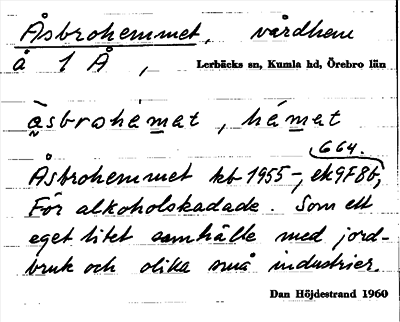 Åsbrohemmet, vårdhem
å 1 Å, Lerbäcks sn, Kumla hd, Örebro län
åsbrohémat, hémat
664.
Åsbrohemmet kb 1955-, ek9F8b,
För alkoholskadade. Som ett
eget litet samhälle med jord-
bruk och olika små industrier.
Dan Höjdestrand 1960